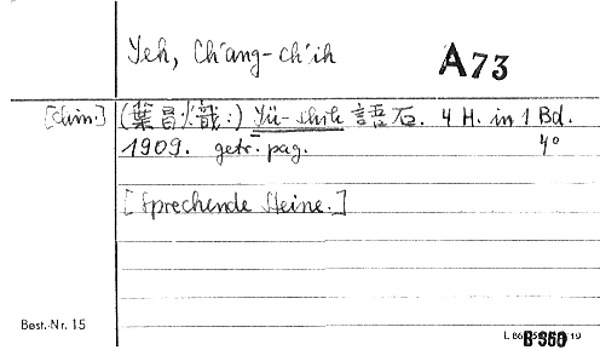 Yeh, Ch'ang-ch'ih
A73
[chin.] (葉昌熾:) Yü-shih 語石. 4 H. in 1 Bd.
1909. getr. pag. 4°
[Sprechende Steine.]
Best.-Nr. 15
B 960